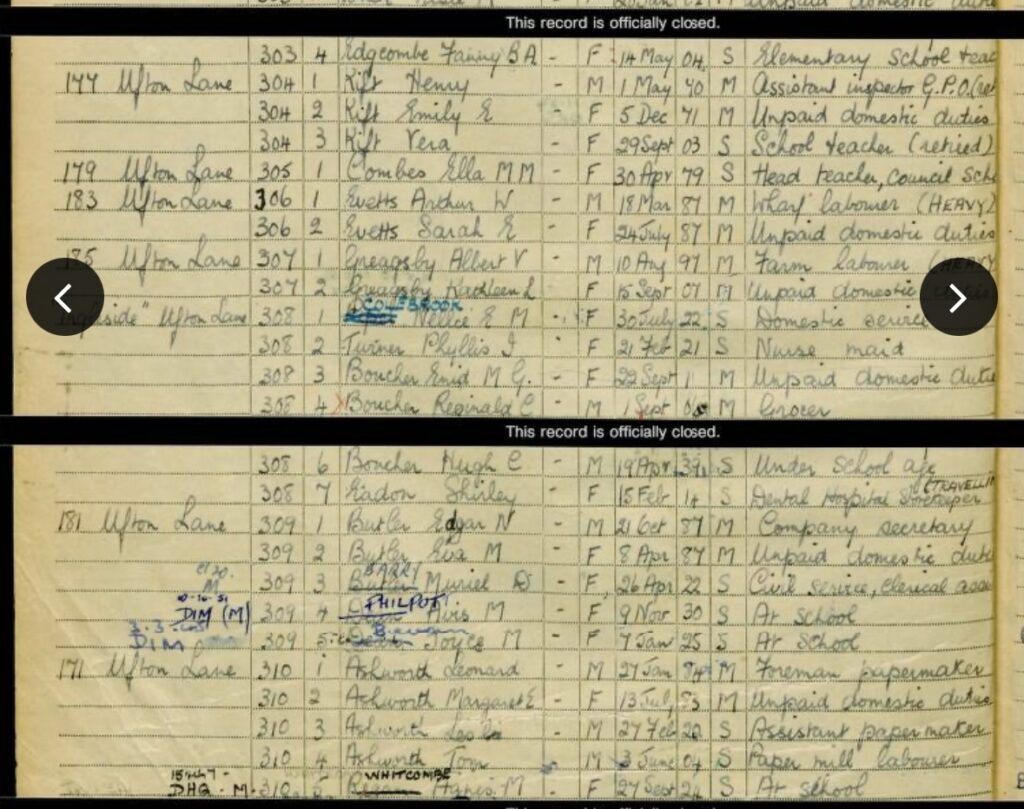 This record is officially closed.
303 4 Edgcombe Fanny B A - F 14 May 04 S Elementary School teac
177 Ufton Lane 304 1 Kift Henry - M 1 May 70 M Assistant inspector G.P.O.(ret
304 2 Kift Emily E - F 5 Dec 71 M Unpaid domestic duties
304 3 Kift Vera - F 29 Sept 03 S School teacher (retired)
179 Ufton Lane 305 1 Combes Ella M M - F 30 Apr 79 S Head teacher, Council Scho
183 Ufton Lane 306 1 Evetts Arthur W - M 18 Mar 87 M Wharf labourer (HEAVY)
306 2 Evetts Sarah E - F 24 July 87 M Unpaid domestic duties
185 Ufton Lane 307 1 Greagsby Albert V M 10 Aug 97 M Farm labourer (HEAVY
307 2 Greagsby Kathleen L F 15 Sept 07 M Unpaid domestic
COLEBROOK
Ingleside" Ufton Lane 308 1 Nellie E M - F 30 July 22 S Domestic service
308 2 Turner Phyllis J F 21 Feb 21 S Nurse maid
308 3 Boucher Enid M G. - F 22 Sept 11 M Unpaid domestic dutie
308 4 Boucher Reginald C - M 1 Sept M Grocer
This record is officially closed.
308 6 Boucher Hugh C - M 19 Apr 39 S Under School age
(TRAVELLIN
308 7 Eadon Shirley - F 15 Feb 14 S Dental Hospital Storekeeper
181 Ufton Lane 309 1 Butler Edgar N - M 21 Oct 87 M Company secretary
309 2 Butler Eva M F 8 Apr 87 M Unpaid domestic duti
BARRY
M 309 3 Butler Muriel D F 26 Apr 22 S Civil Service, Clerical assi
PHILPOT
DIM (M) 309 4 Avis M F 9 Nov 30 S At School
DIM 309 5 Joyce M F 7 Jan 25 S At School
171 Ufton Lane 310 1 Ashworth Leonard M 27 Jan M Foreman papermaker
310 2 Ashworth Margaret E F 13 July M Unpaid domestic duties
310 3 Ashworth Leslie M 27 Feb 20 S Assistant papermaker
310 4 Ashworth Tom M 3 June 04 S Paper mill labourer
WHITCOMBE
DHQ - M 310 5 M F 27 Sept S At School